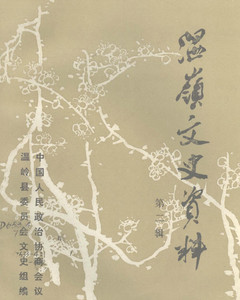 温嶺文史資料
第二辑
中国人民政治协商会议
温岭县委员会文史组编